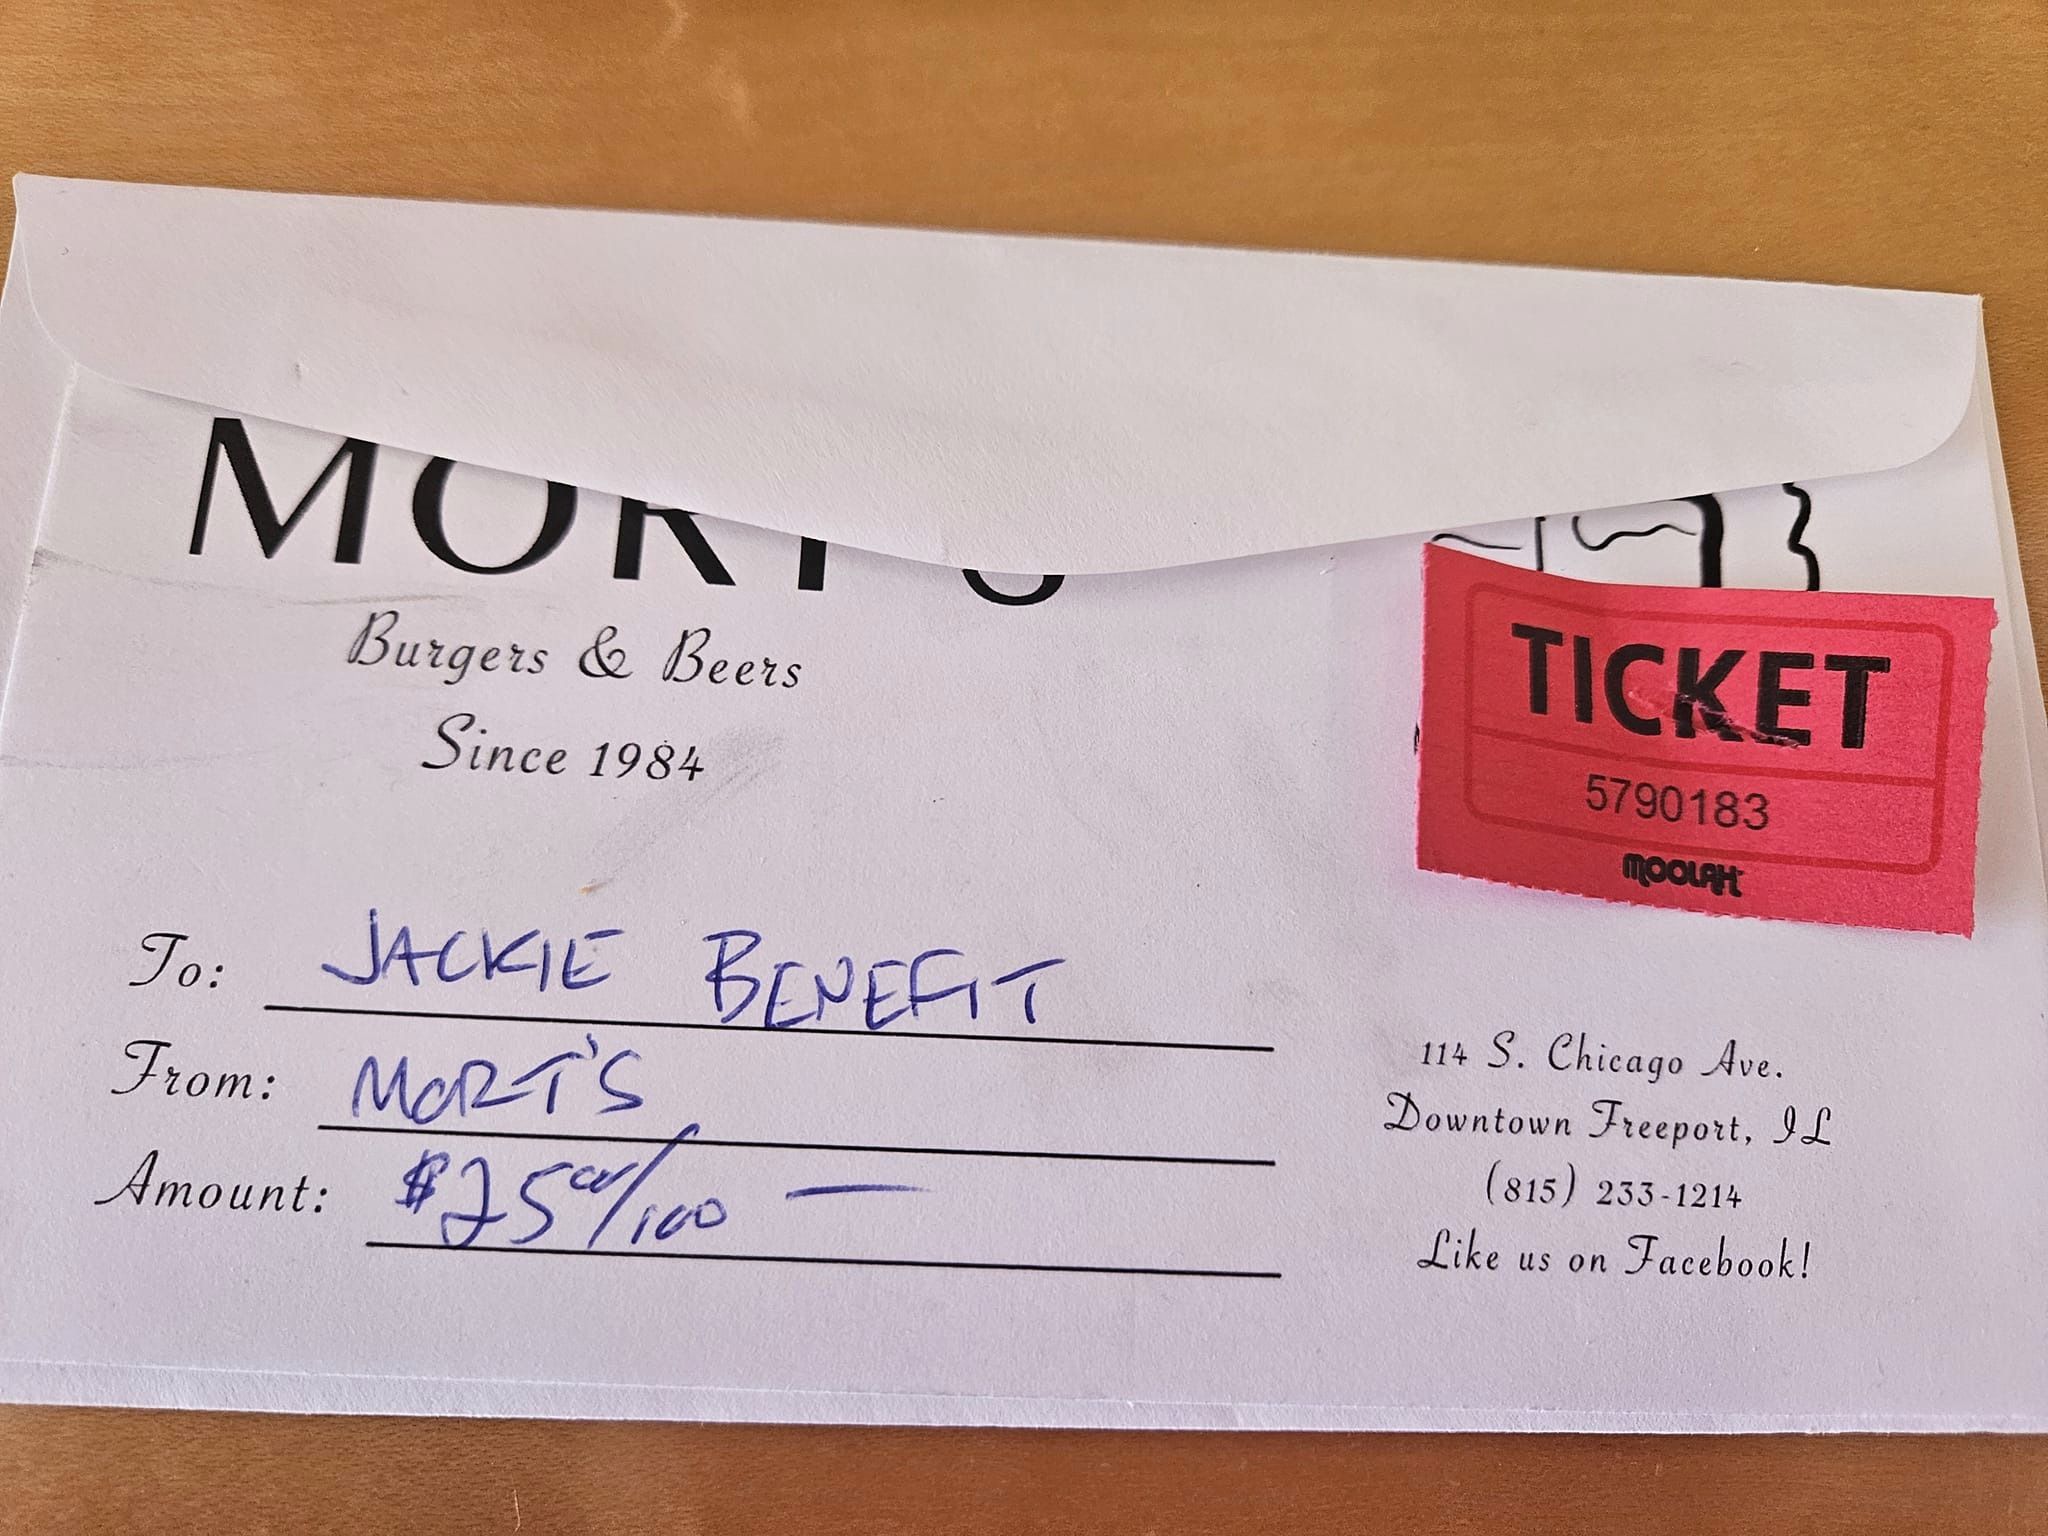 MORT'S
Burgers & Beers
Since 1984
TICKET
5790183
MOOLAH
To: JACKIE BENEFIT
From: MORT'S
Amount: $25 00/100 —
114 S. Chicago Ave.
Downtown Freeport, IL
(815) 233-1214
Like us on Facebook!